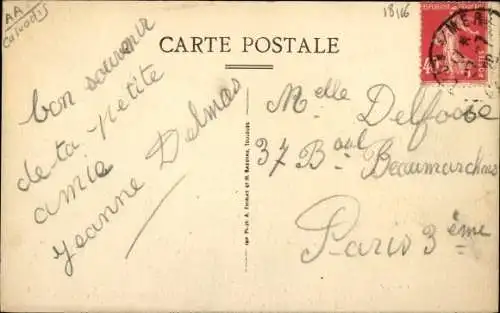 AA
Calvados
18/16
CARTE POSTALE
bon souvenir
de ta petite
amie
Jeanne Delmas
Melle Delfosse
37 Boul
Beaumarchais
Paris 3ème